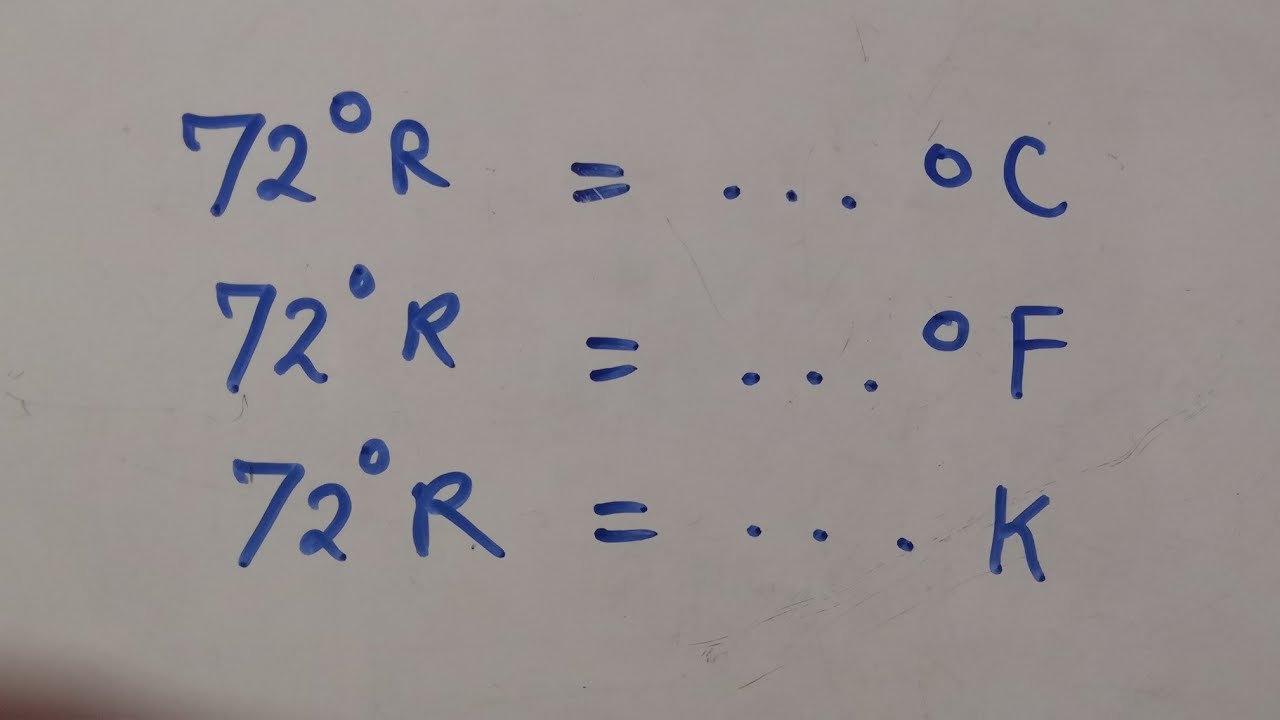 72°R = ... °C
72°R = ... °F
72°R = ... K